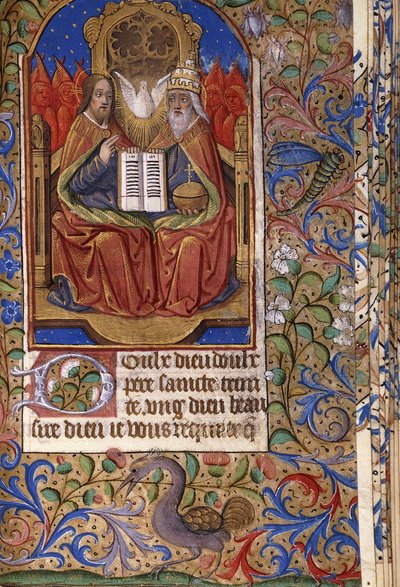 Doulx dieu doulx
pere saincte trini
te, vng dieu beau
sire dieu ie vous